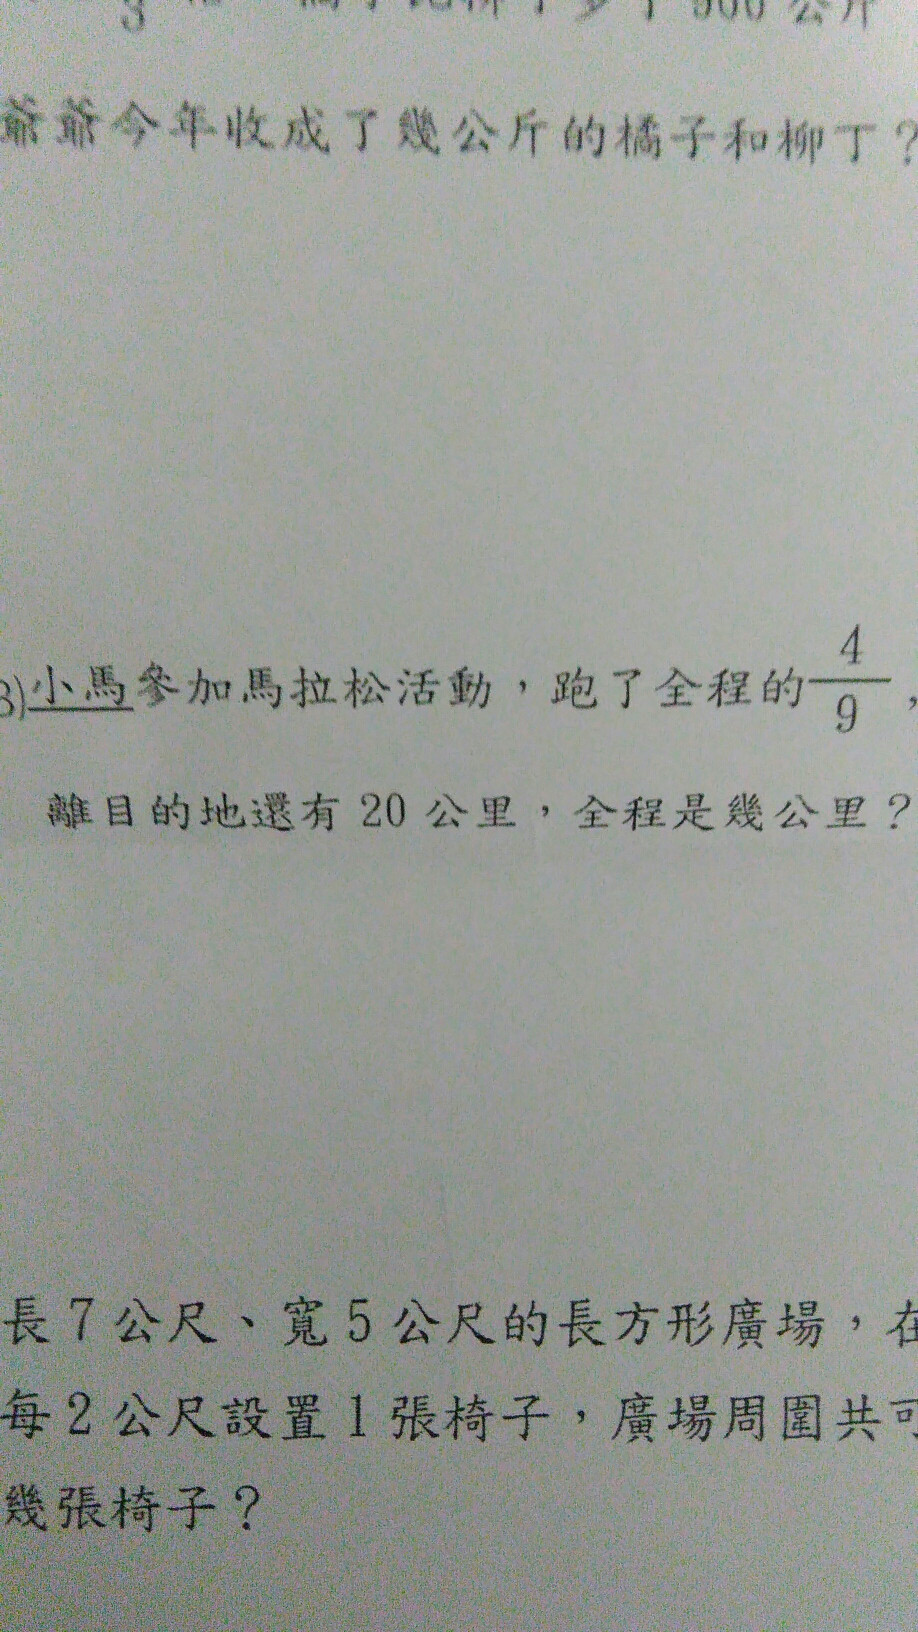 爺爺今年收成了幾公斤的橘子和柳丁？
3)小馬參加馬拉松活動，跑了全程的4/9，
離目的地還有20公里，全程是幾公里？
長7公尺、寬5公尺的長方形廣場，在
每2公尺設置1張椅子，廣場周圍共可
幾張椅子？